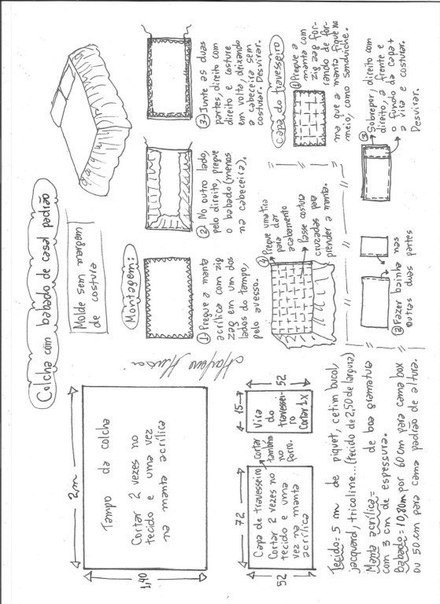 Colcha com babado de casal padrão
Molde sem margem
de costura
2m
Tampo da colcha
Cortar 2 vezes no
tecido e uma vez
na manta acrílica
1,40
72
Capa de travesseiro
Cortar 2 vezes no
tecido e uma
vez na manta
acrílica
52
Cortar
também
no
forro.
15
Vira
do
travessei
ro
Cortar 1x
52
Tecido: 5 m de piquet, cetim bucol,
jacquard, tricoline... (tecido de 2,50 de largura)
Manta acrílica = de boa gramatura
com 3 cm de espessura.
Babado = 10,80m por 60 cm para cama box
ou 50 cm para cama padrão de altura.
Montagem:
① Pregue a manta
acrílica com zig
zag em um dos
lados do tampo,
pelo avesso.
② No outro lado,
pelo direito, pregue
o babado (menos
na cabeceira),
③ Junte as duas
partes, direito com
direito e costure
em volta, deixando
a cabeceira sem
costurar. Desvirar.
④ Pregue uma tira
para dar
acabamento
Passe costura
cruzadas para
prender a manta.
Capa do travesseiro
① Pregue a
manta com
zig zag for-
rando de for-
ma que a manta fique no
meio, como sanduíche.
② Fazer bainha nas
outras duas partes
③ Sobrepor, direito com
direito, a frente e
o fundo da capa +
a vira e costurar.
Desvirar.